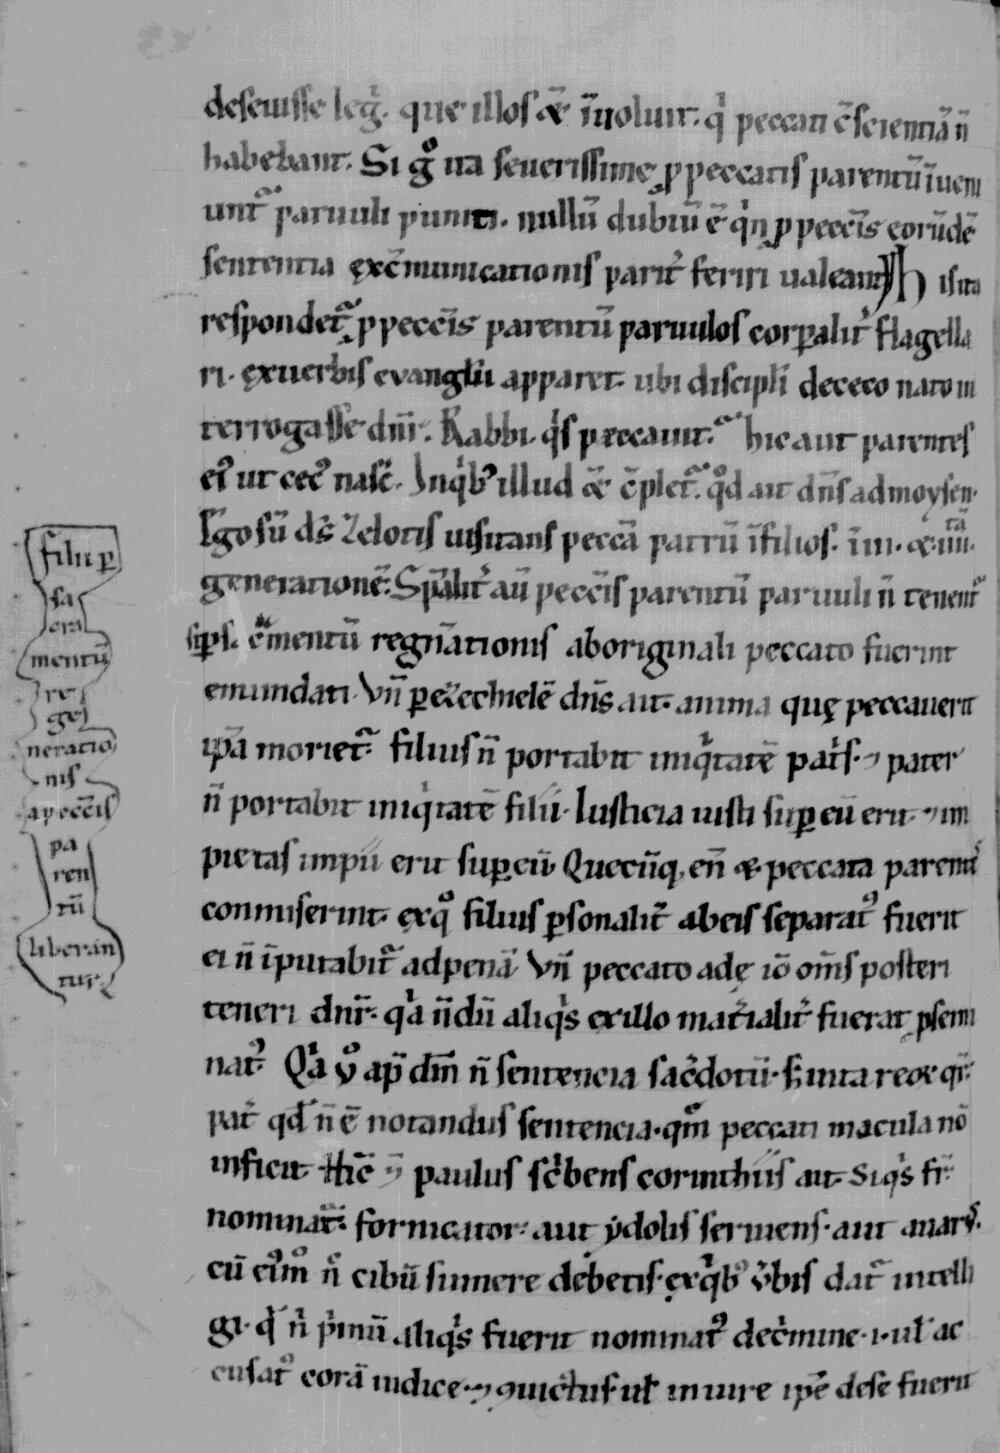 deseuisse legͥ. que illos &̄ īuoluit. qͥ peccati c̄scientiā n̄
habebant. Si gͦ ita seuerissime ꝓ peccatis parentū īueni
untᷓ paruuli puniti. nullū dubiū ē qͥn ꝓ pecc̄is eorūdē
sententia ęxc̄municationis parit̄ feriri ualeant H is ita
respondetᷓ ꝓ pecc̄is parentū paruulos corꝑalit̄ flagella
ri. ęxuerbis evanglii apparet. ubi discipl̄i dececo nato in
terrogasse dn̄r. Rabbi. qͥs peccauit.ᷓ hic aut parentes
eiꝰ ut cecꝰ nasc̄. Inqͥbꝰ illud &̄ c̄pletᷓ. qͦd ait dn̄s ad moysen.
Ego sū ds̄ zelotis uisitans peccā patrū ī filios. ī .iii. & .iiii.tā
generationē: Sp̄alit̄ aū pecc̄is parentū paruuli n̄ tenentᷓ
sips. c̄mentū regn̄ationis aboriginali peccato fuerint
emundati. Vn̄ ꝑ ezechielē dn̄s ait. anima quę peccauerit
ip̄a morietᷓ. filius n̄ portabit iniqͥtatē patͥs. ⁊ pater
n̄ portabit iniqͥtatē filii. Iusticia iusti suꝑ eū erit ⁊ im
pietas impii erit suꝑ eū. Quecūq, en̄ & peccata parentͣ
conmiserint. ęxqͦ filius ꝑsonalit̄ abeis separatꝰ fuerit
ei n̄ īputabitᷓ adpenā. Vn̄ peccato adę iō om̄s posteri
teneri dn̄r. qͥa n̄dū aliqͥs exillo mat̄ialit̄ fuerat ꝓsemi
natꝰ. Qͥa ūͦ ap̄ dm̄ n̄ sentencia sac̄dotū.
pat̄ qd̄ n̄ ē notandus sentencia. qm̄ peccati macula nō
inficit. Hīc ⁊ paulus sc̄bens corinthiis ait. Siqͥs fr̄
nominatᷓ fornicator. aut ydolis seruiens. aut auarꝰ.
cū eiꝰm̄ n̄ cibū sumere debetis. ęxqͥbꝰ ūbis datᷓ intelli
gi. qͥ n̄ pͥmū aliqͥs fuerit nominatꝰ dec̄mine .i. ul̄ ac
cusatꝰ corā iudice. ⁊ ꝯuictus. ul̄ iniure ip̄e dese fuerit
filii ꝑ
sa
cra
mentū
re
ge
neratio
nis
apecc̄is
pa
ren
tū
liberan
turᷓ